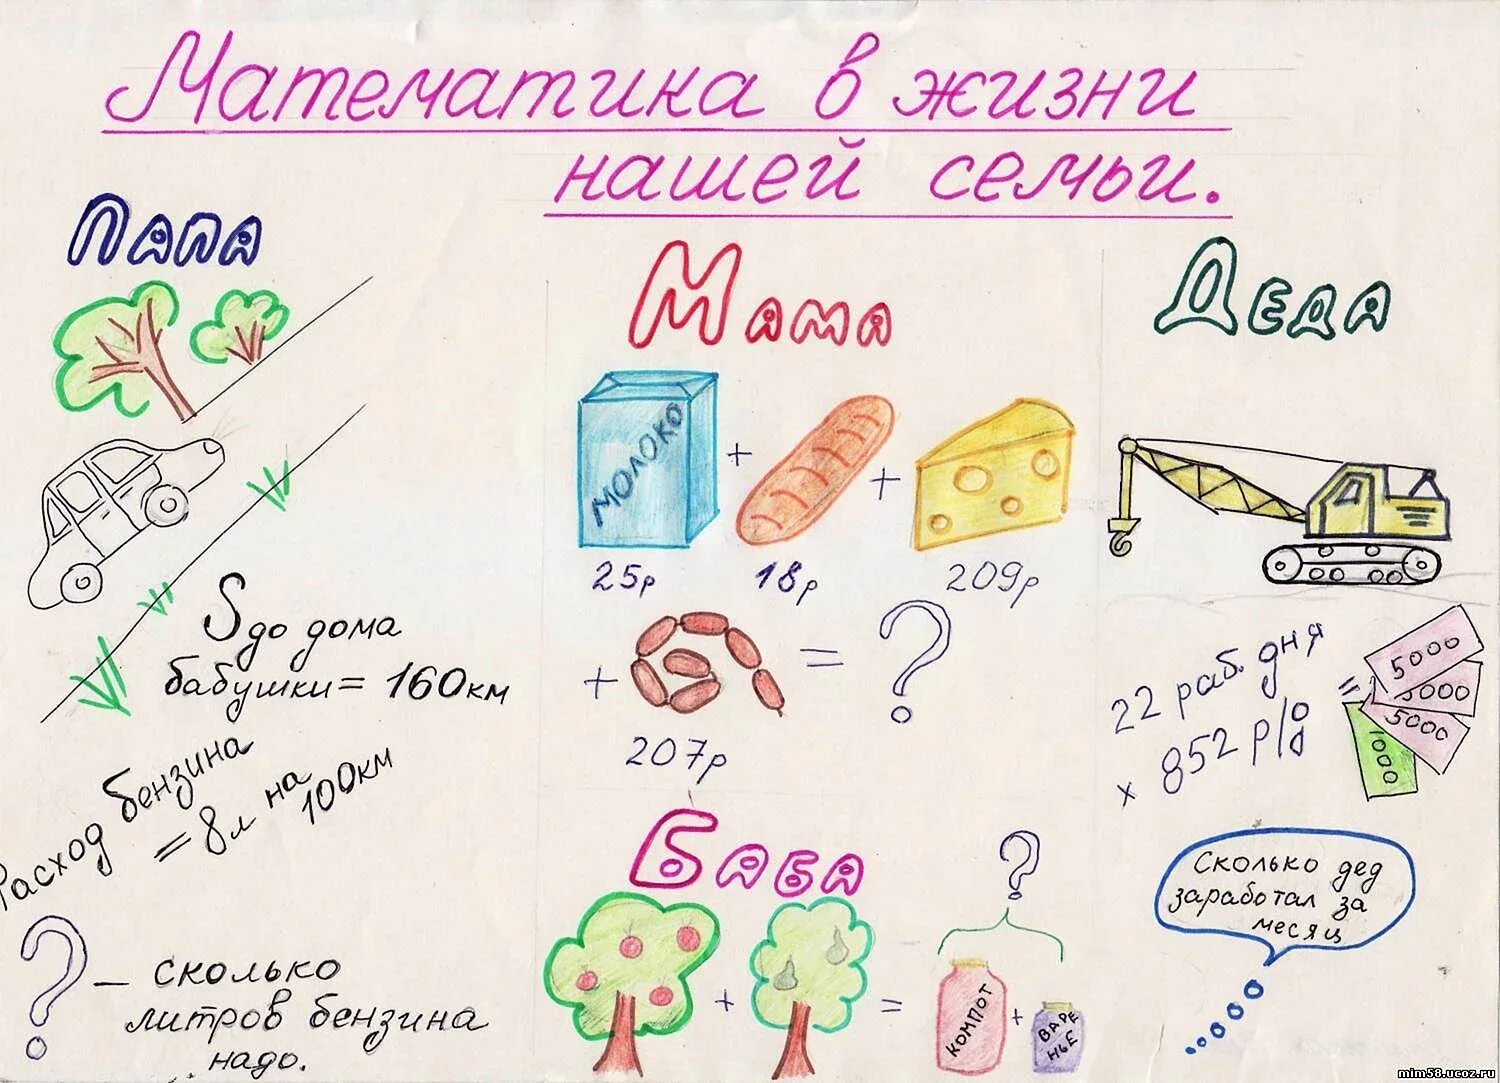 Математика в жизни
нашей семьи.
Папа
S до дома
бабушки = 160км
Расход бензина
= 8л на 100км
? – сколько
литров бензина
надо.
Мама
МОЛОКО
+
+
25р
18р
209р
+
= ?
207р
Баба
?
+
=
КОМПОТ
+
ВАРЕ
НЬЕ
Деда
22 раб. дня
х 852 р/д
=
5000
5000
5000
1000
Сколько дед
заработал за
месяц
mim58.ucoz.ru